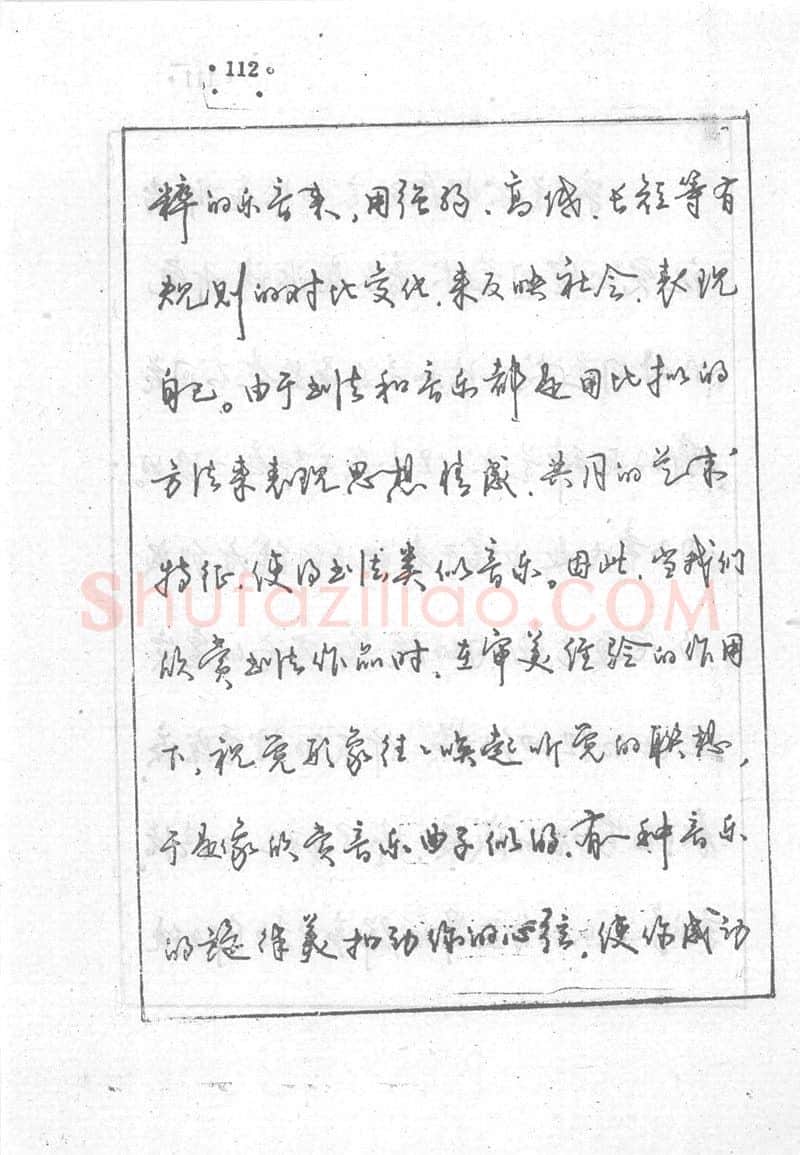 112
粹的乐音来，用强弱、高低、长短等有
规则的对比变化，来反映社会、表现
自己。由于书法和音乐都是用比拟的
方法来表现思想情感，共同的艺术
特征，使得书法类似音乐。因此，当我们
欣赏书法作品时，在审美经验的作用
下，视觉形象往往唤起听觉的联想，
于是象欣赏音乐曲子似的，有一种音乐
的旋律美扣动你的心弦，使你感动
Shufaziliao.COM